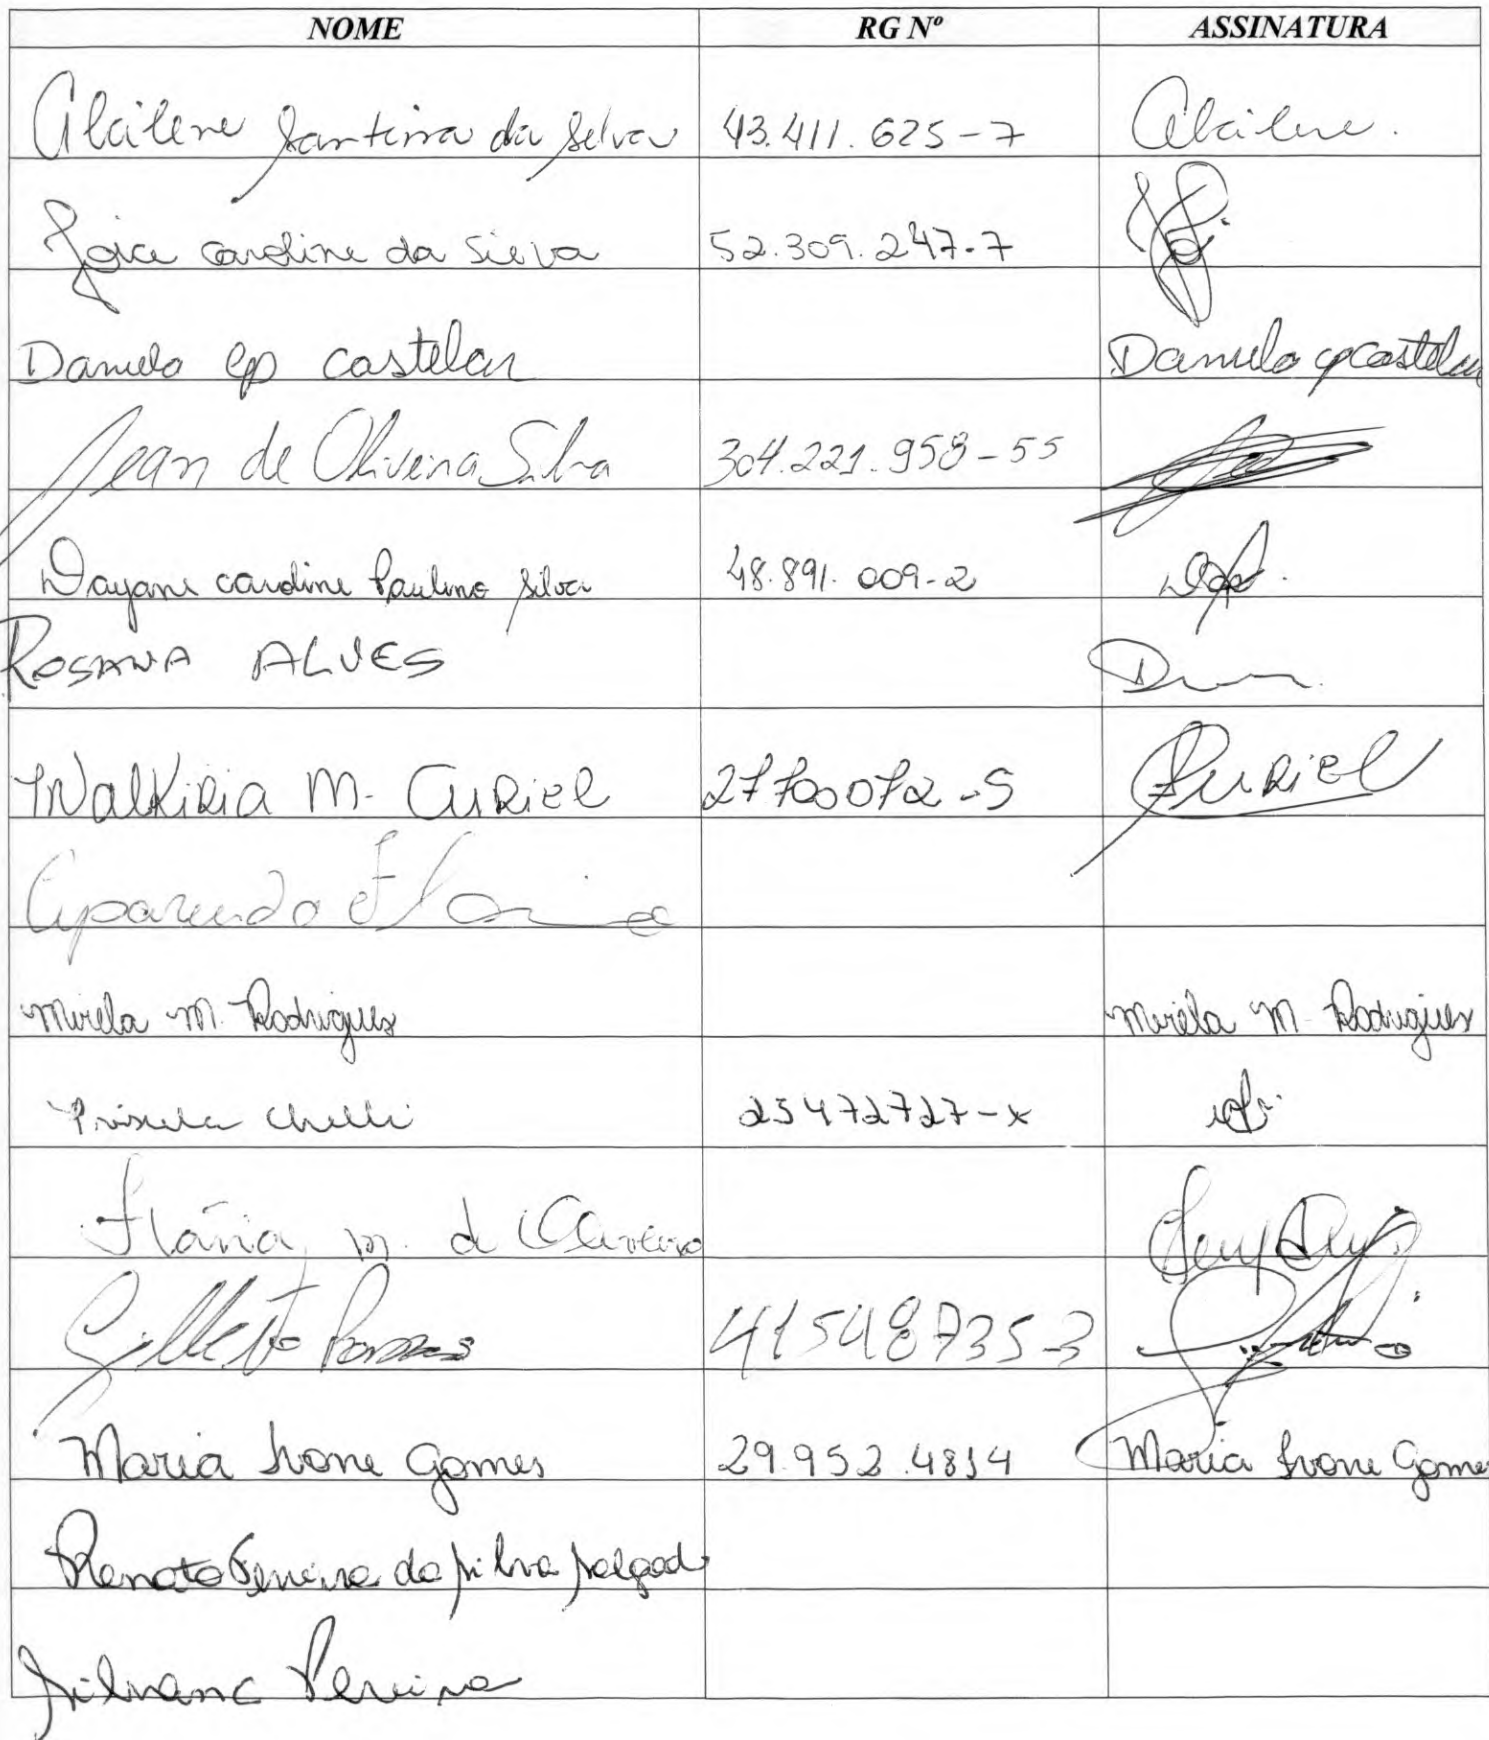 NOME RG Nº ASSINATURA
Alcilene Santina da Silva 43.411.625-7 Alcilene.
Joice caroline da Silva 52.309.247-7
Daniela cp castelar Daniela cp castelar
Jean de Oliveira Silva 304.221.958-55
Dayane caroline Paulino Silva 48.891.009-2
ROSANA ALVES
Walkiria M. Curiel 27700072-5 Curiel
Aparecida
Mirela M. Rodrigues Mirela M. Rodrigues
Priscila Chelli 23472727-x
Flávia m. de Oliveira
Gilberto 41548735-3
Maria Ivone Gomes 29.952.4814 Maria Ivone Gomes
Renato Ferreira da Silva Salgado
Silvana Pereira